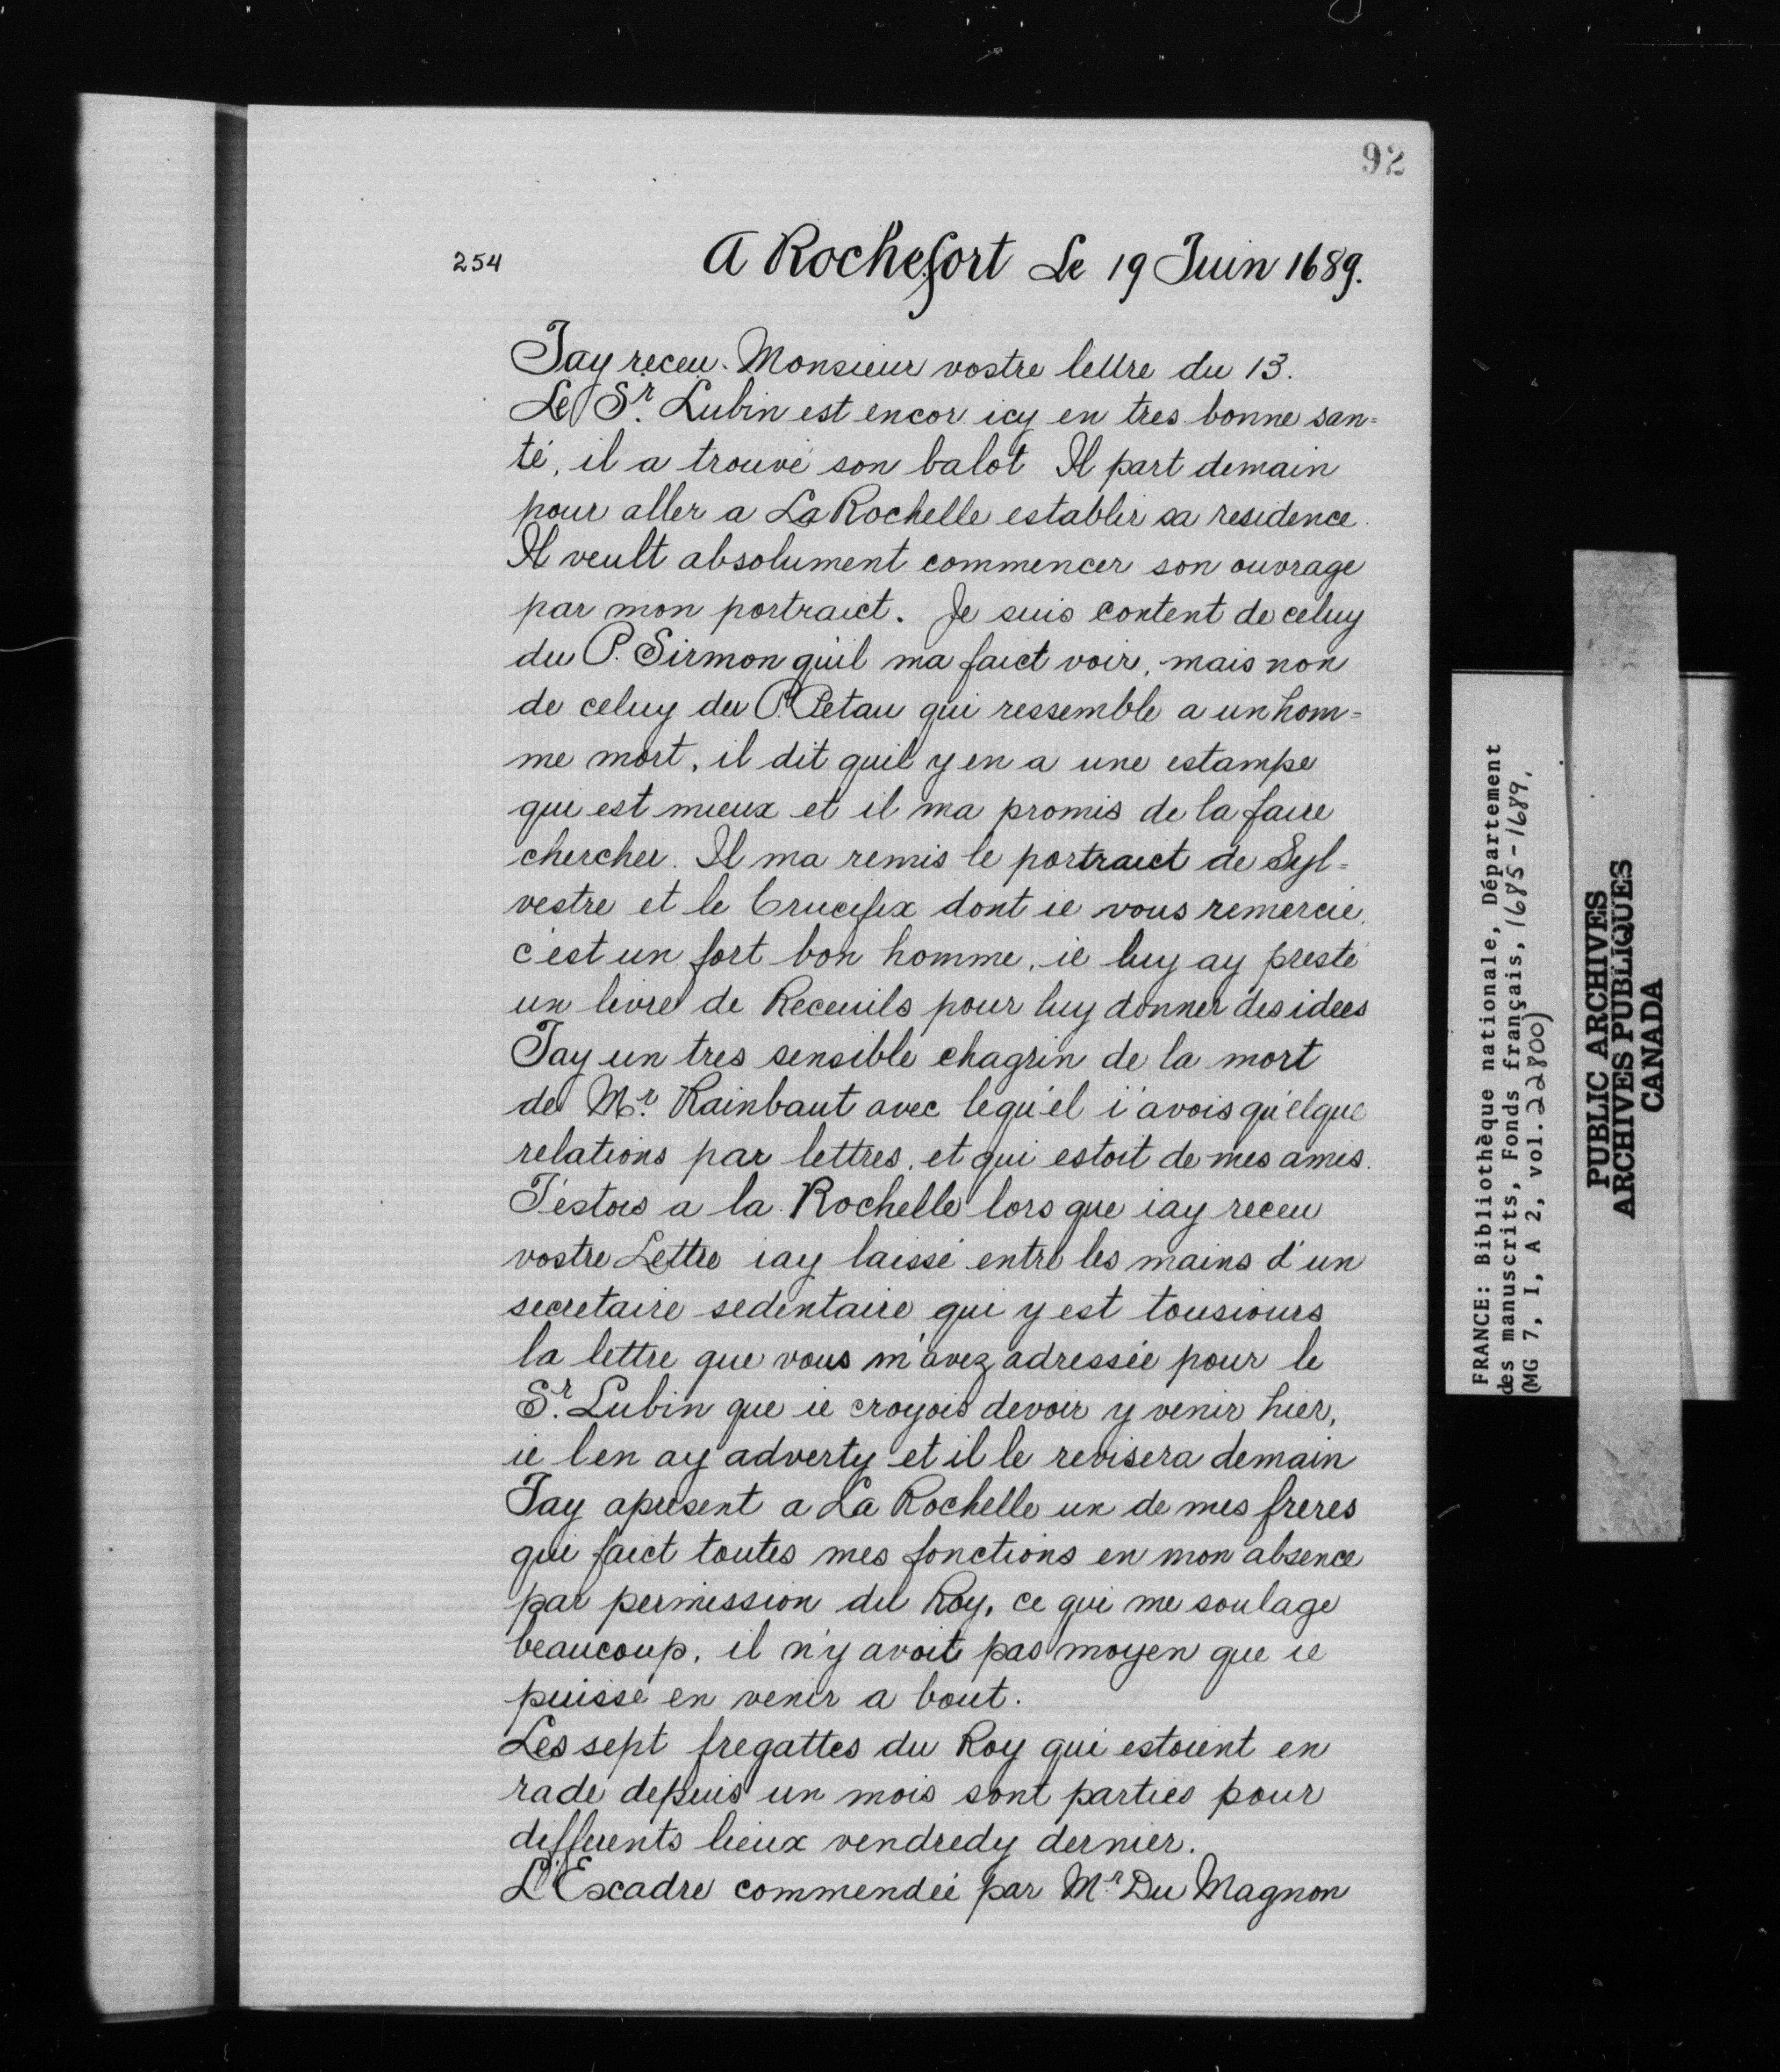 92
254
A Rochefort Le 19 Juin 1689.
Jay receu. Monsieur vostre lettre du 13.
Le Sr. Lubin est encor icy en tres bonne san=
té, il a trouvé son balot Il part demain
pour aller a La Rochelle establir sa residence.
Il veult absolument commencer son ouvrage
par mon portraict. Je suis content de celuy
du P. Sirmon qu'il ma faict voir, mais non
de celuy du P. Petau qui ressemble a un hom=
me mort, il dit quil y en a une estampe
qui est mieux et il ma promis de la faire
chercher. Il ma remis le portraict de Syl=
vestre et le Crucifix dont ie vous remercie.
c'est un fort bon homme, ie luy ay presté
un livre de Receuils pour luy donner des idees
Jay un tres sensible chagrin de la mort
de Mr. Rainbaut avec lequ'el i'avois qu'elque
relations par lettres, et qui estoit de mes amis.
J'estois a la Rochelle lors que iay receu
vostre Lettre iay laissé entre les mains d'un
secretaire sedentaire qui y est tousiours
la lettre que vous m'avez adressée pour le
Sr. Lubin que ie croyois devoir y venir hier,
ie l'en ay adverty et il le revisera demain
Jay apresent a La Rochelle un de mes freres
qui faict toutes mes fonctions en mon absence
par permission du Roy, ce qui me soulage
beaucoup, il n'y avoit pas moyen que ie
puisse en venir a bout.
Les sept fregattes du Roy qui estoient en
rade depuis un mois sont parties pour
differents lieux vendredy dernier.
L'Escadre commendée par Mr Du Magnon
FRANCE: Bibliothèque nationale, Département
des manuscrits, Fonds français, 1685-1689.
(MG 7, I, A 2, vol. 22800)
PUBLIC ARCHIVES
ARCHIVES PUBLIQUES
CANADA